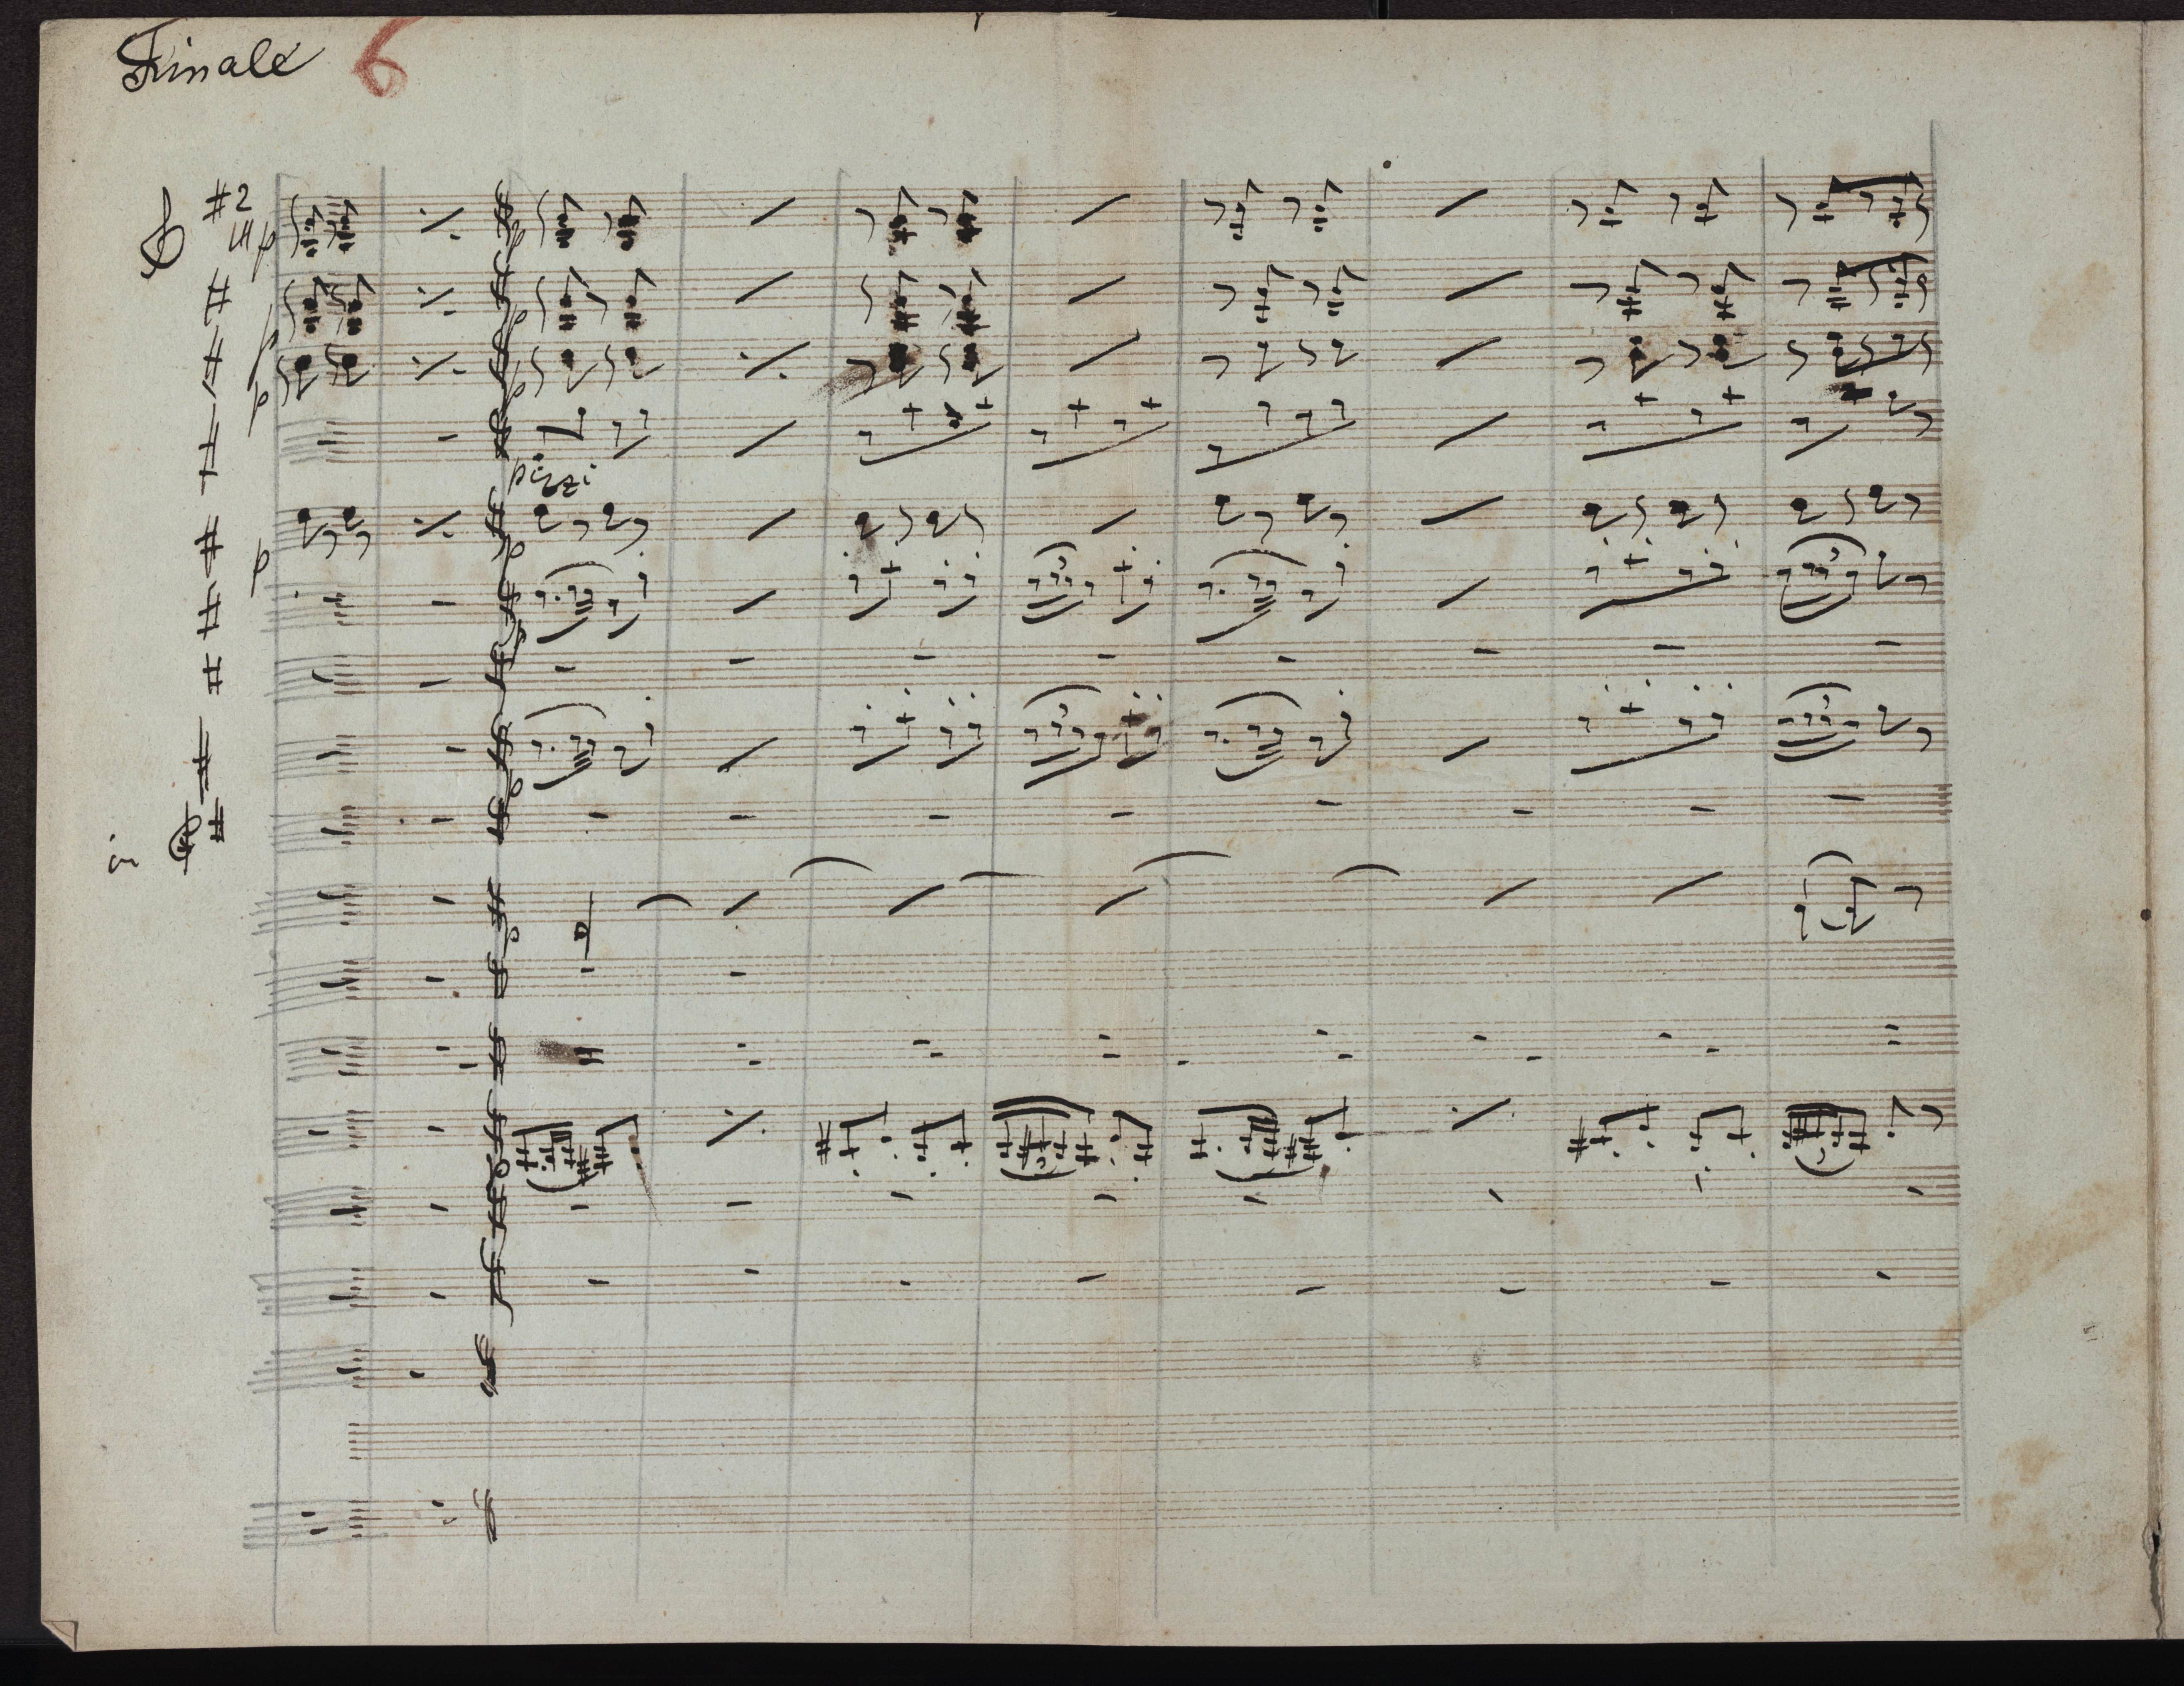 Finale 6
2
p
p
p
pizzi
p
in